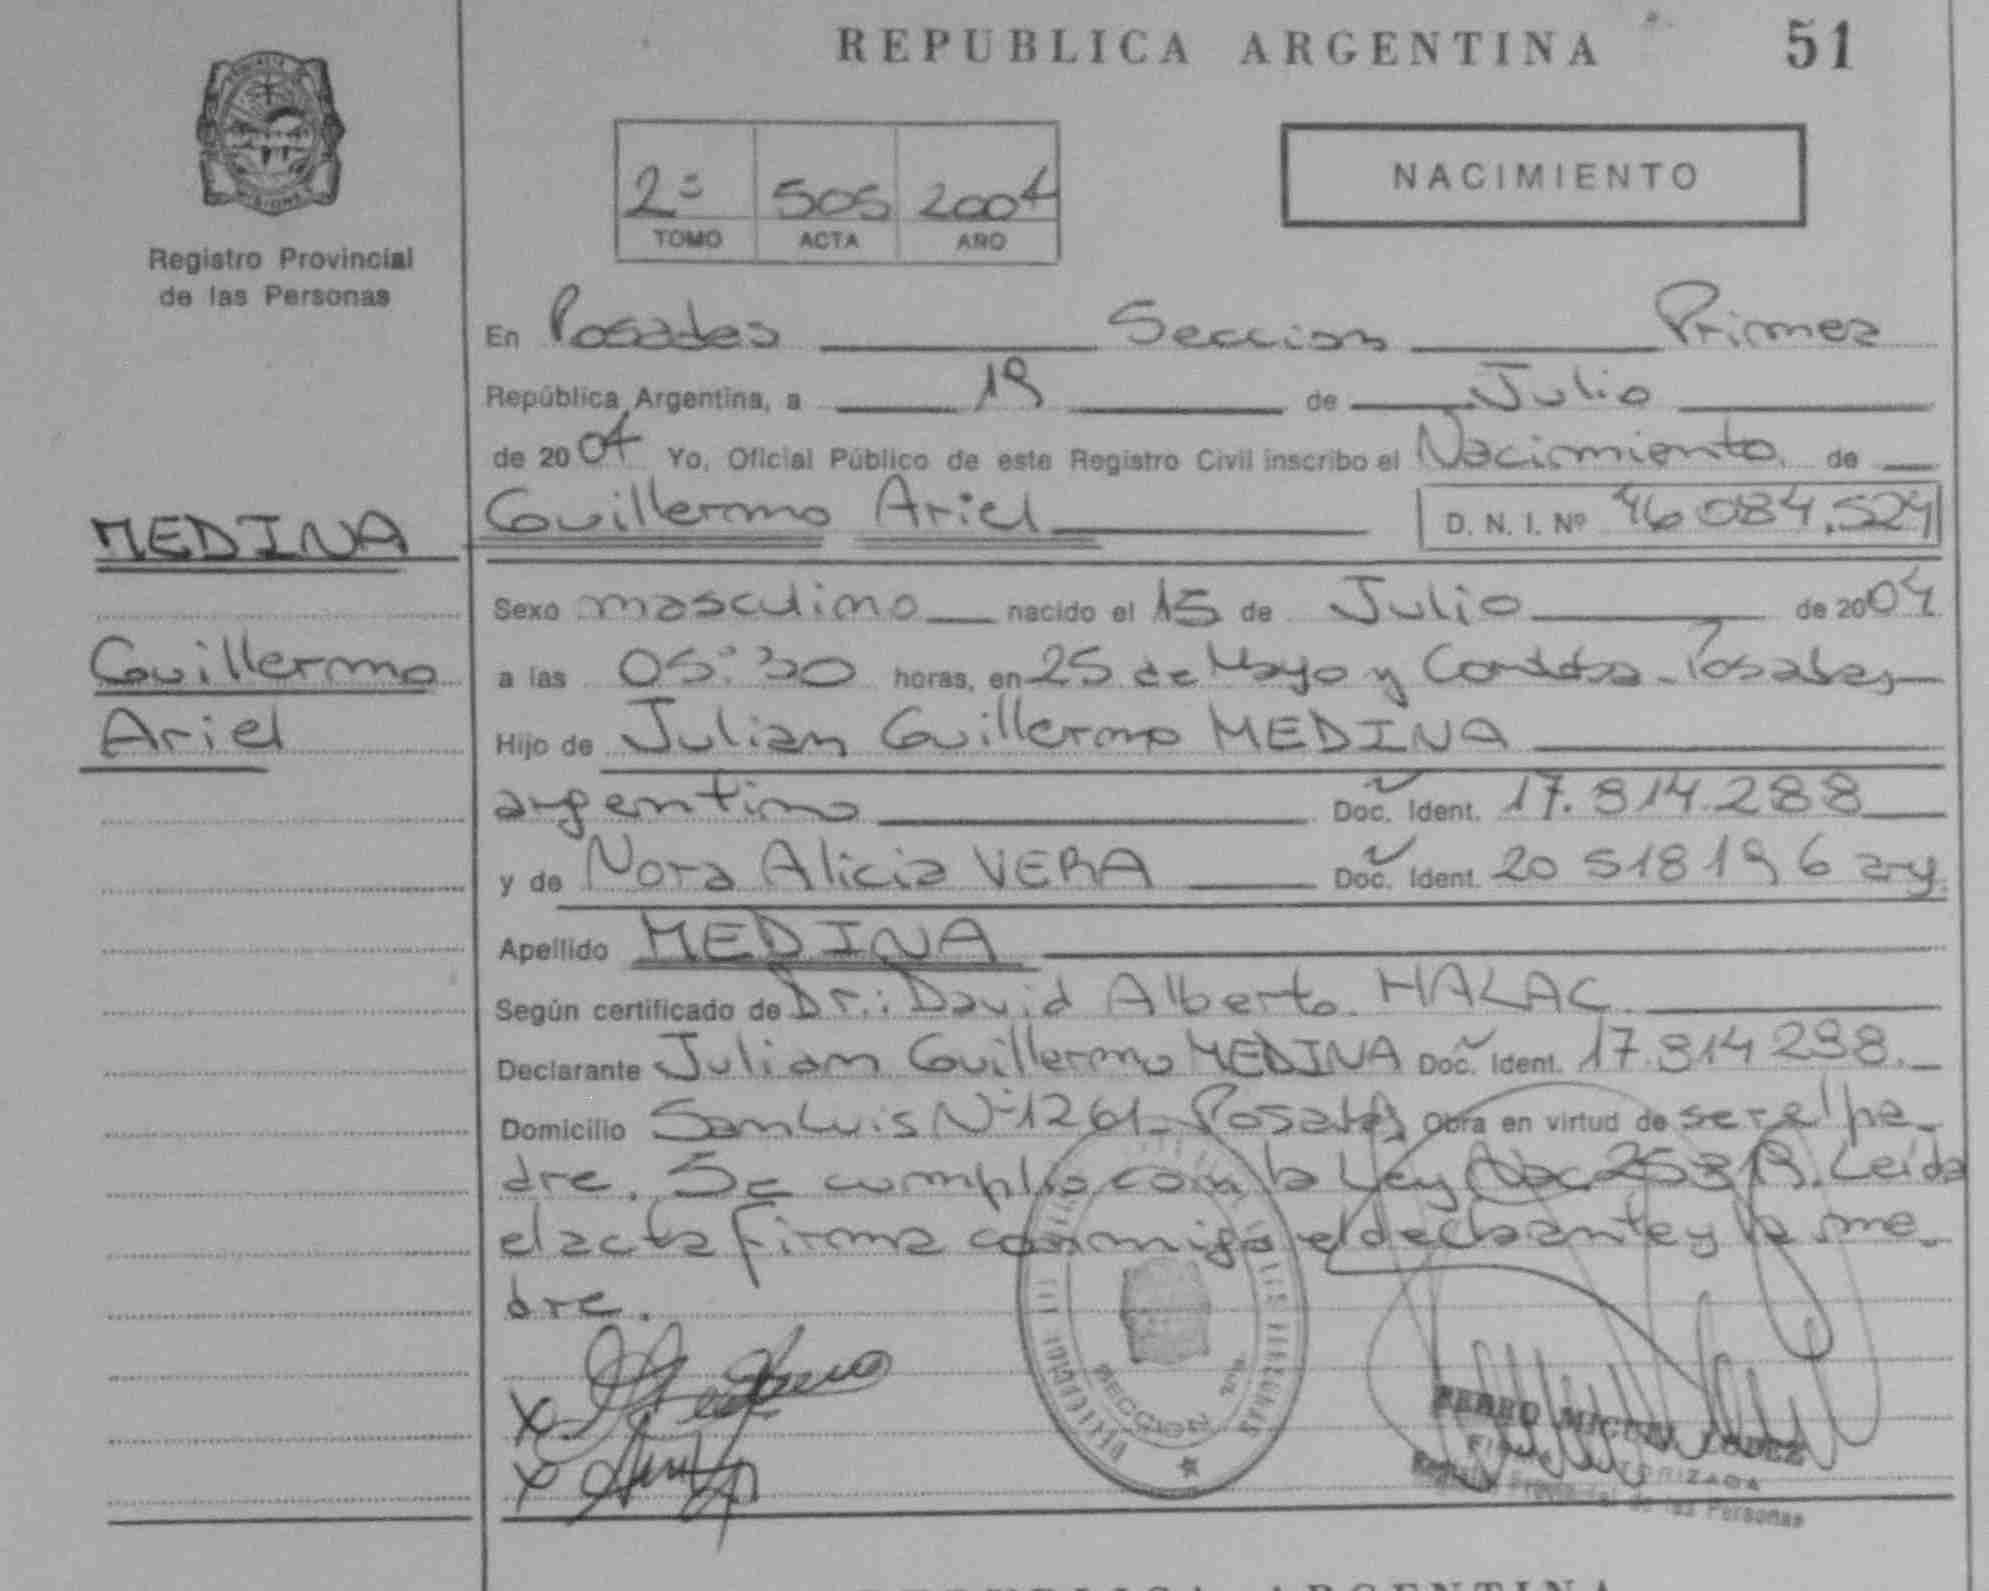 REPUBLICA ARGENTINA 51
Registro Provincial
de las Personas
2ª 505 2004
TOMO ACTA AÑO
NACIMIENTO
En Posadas Seccion Primera
República Argentina, a 19 de Julio
de 2004 Yo, Oficial Público de este Registro Civil inscribo el Nacimiento de
MEDINA
Guillermo
Ariel
Guillermo Ariel D. N. I. Nº 46 084.524
Sexo masculino nacido el 15 de Julio de 2004
a las 05:30 horas, en 25 de Mayo y Cordoba - Posadas
Hijo de Julian Guillermo MEDINA
argentino Doc. Ident. 17.814.288
y de Nora Alicia VERA Doc. Ident. 20 518 196 arg.
Apellido MEDINA
Según certificado de Dr.: David Alberto HALAC
Declarante Julian Guillermo MEDINA Doc. Ident.
Domicilio San Luis Nº 1261 - Posadas Obra en virtud de ser el pa-
dre. Se cumplio con la Ley Nac. Leida
el acta firma conmigo el declarante y la ma-
dre.
SECCION
PEDRO MIGUEL LOPEZ
FIRMA AUTORIZADA
Registro Provincial de las Personas
REPUBLICA ARGENTINA